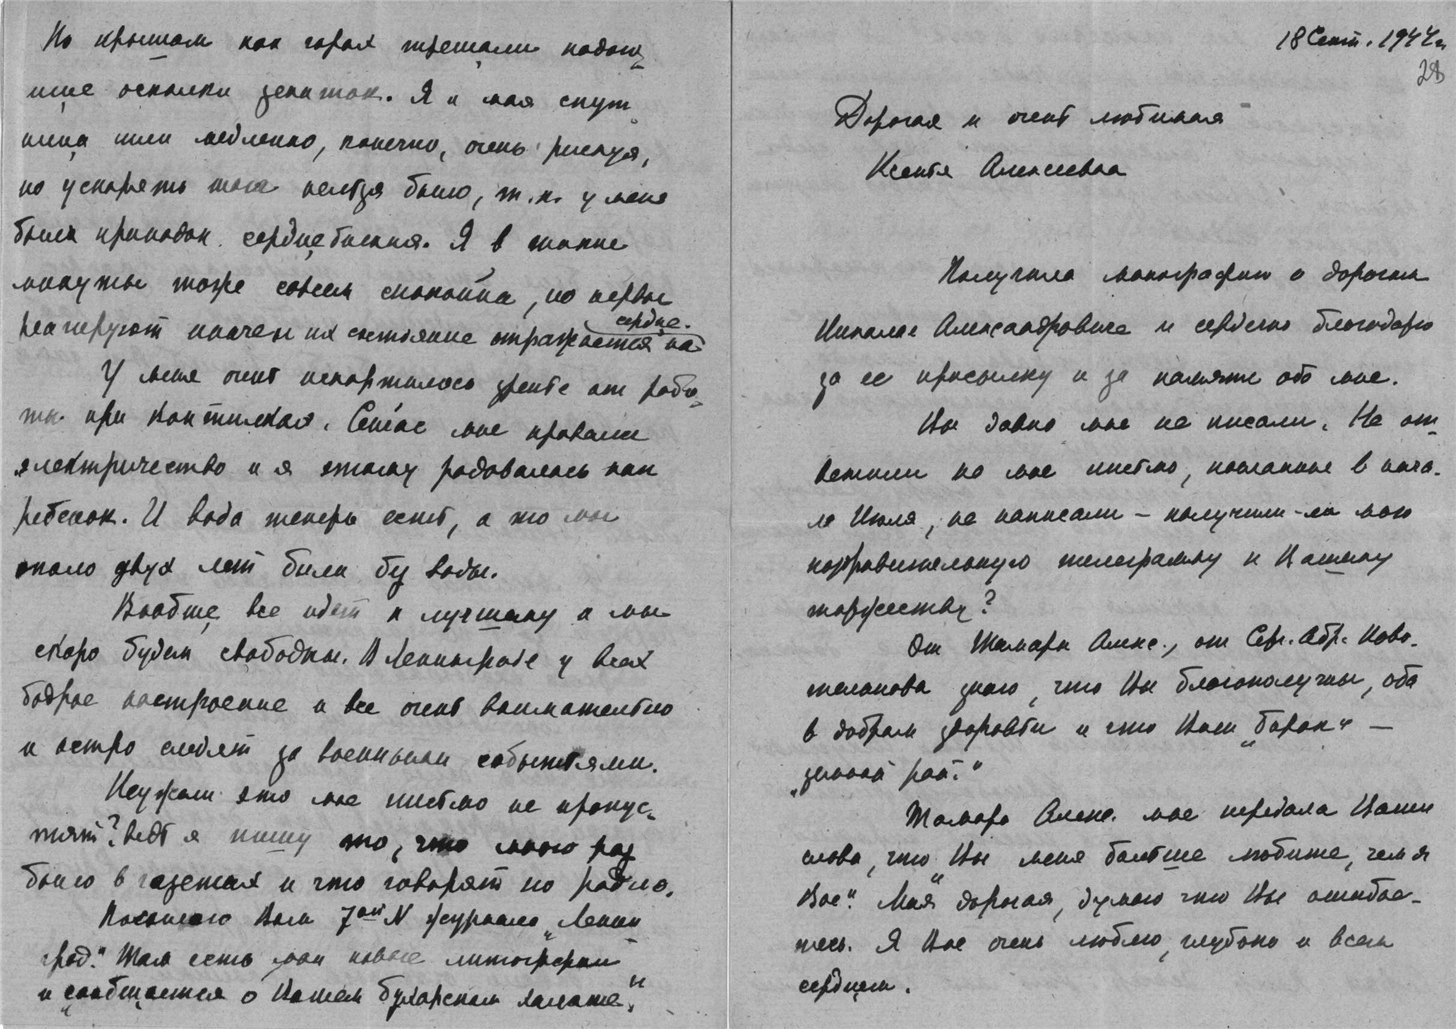 По крышам как горох трещали падаю-
щие осколки зениток. Я и моя спут-
ница шли медленно, конечно, очень рискуя,
но ускорять шага нельзя было, т.к. у меня
были припадок сердцебиения. Я в такие
минуты тоже совсем спокойна, но нервы
реагируют иначе и их состояние отражается на
сердце.
У меня очень испортилось зренье от рабо-
ты при коптилках. Сейчас мне провели
электричество и я этому радовалась как
ребенок. И вода теперь есть, а то мы
около двух лет были бу воды.
Вообще, все идет к лучшему и мы
скоро будем свободны. В Ленинграде у всех
бодрое настроение и все очень внимательно
и остро следят за военными событьями.
Неужели это мое письмо не пропус-
тят? Ведь я пишу то, что много раз
было в газетах и что говорят по радио.
Посылаю Вам 7ой N журнала „Ленин
град." Там есть мои новые литографии
и „сообщается о Вашем бухарском халате."
18 Сент. 1944 г.
28
Дорогая и очень любимая
Ксенья Алексеевна
Получила монографию о дорогом
Николае Александровиче и сердечно благодарю
за ее присылку и за память обо мне.
Вы давно мне не писали. Не от-
ветили на мое письмо, посланное в нача-
ле Июля, не написали – получили-ли мою
поздравительную телеграмму к Вашему
торжеству?
От Тамары Алекс., от Серг. Абр. Ново-
тельнова знаю, что Вы благополучны, оба
в добром здоровьи и что Ваш „барак" –
„земной рай."
Тамара Алекс. мне передала Ваши
слова, что „Вы меня больше любите, чем я
Вас". Моя дорогая, думаю что Вы ошибае-
тесь. Я Вас очень люблю, глубоко и всем
сердцем.